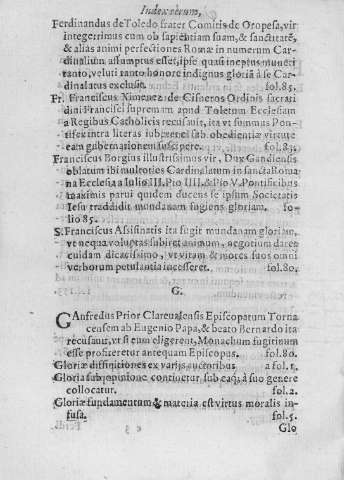 Index rerum,
Ferdinandus de Toledo frater Comitis de Oropesa, vir
integerrimus cum ob sapientiam suam, & sanctitatē,
& alias animi perfectiones Romæ in numerum Car-
dinalium assumptus esset, ipse quasi ineptus muneri
tanto, veluti tanto honore indignus gloriā à se Car-
dinalatus exclusit. fol.85.
Fr. Franciscus Ximenez de Cisneros Ordinis sacrati
dini Francisci supremam apud Toletum Ecclesiam
a Regibus Catholicis recusauit, ita vt summus Pon-
tifex intra literas iuberet sub obedientiæ virtute
eam gubernationem suscipere. fol.83.
Franciscus Borgius illustrissimus vir, Dux Gandiensis
oblatum ibi multoties Cardinalatum in sancta Roma
na Ecclesia a Iulio III. Pio IIII. & Pio V. Pontificibus
maximis parui quidem ducens se ipsum Societatis
Iesu tradidit mundanam fugiens gloriam. fo-
lio 85.
S. Franciscus Assisinatis ita fugit mundanam gloriam,
vt nequa voluptas subiret animum, negotium daret
cuidam dicacissimo, vt vitam & mores suos omni
verborum petulantia incesseret. fol.80.
G.
GAnfredus Prior Clareualensis Episcopatum Torna
censem ab Eugenio Papa, & beato Bernardo ita
recusauit, vt si eum eligerent, Monachum fugitiuum
esse profiteretur antequam Episcopus. fol.80.
Gloriæ diffinitiones ex varijs auctoribus a fol.1.
Gloria sub opinione continetur sub eaq; à suo genere
collocatur. fol.2.
Gloriæ fundamentum & materia est virtus moralis in-
fusa. fol.5.
Glo